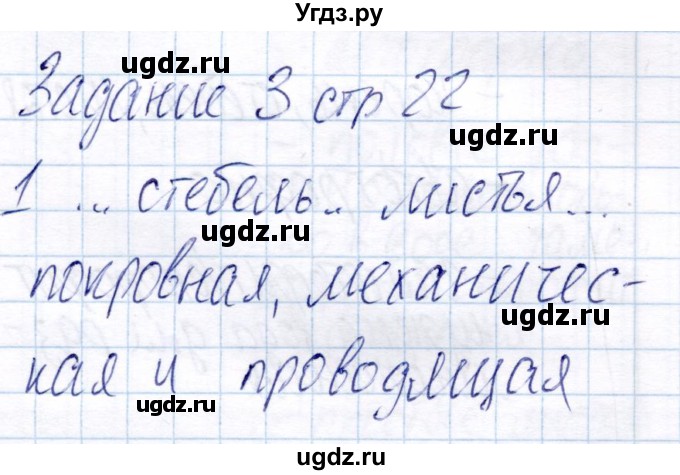 Угдз.ру
ugdz.ru
Задание 3 стр 22
ugdz.ru
ugdz.ru
1 ... стебель.. листья...
ugdz.ru
покровная, механичес-
ugdz.ru
кая и проводящая
ugdz.ru
ugdz.ru
ugdz.ru